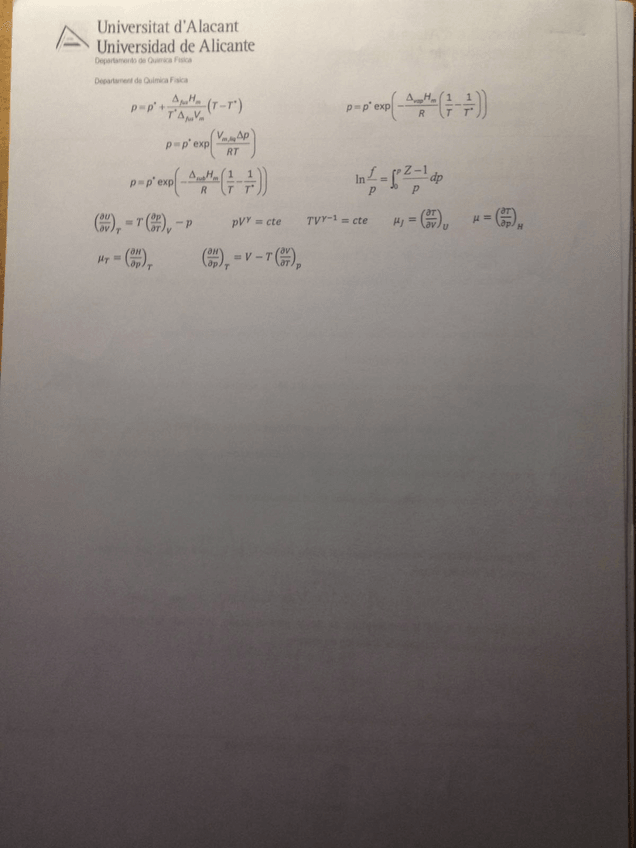 Universitat d'Alacant
Universidad de Alicante
Departamento de Química Física
Departament de Química Física
p = p* + Δ_fus H_m / (T* Δ_fus V_m) (T − T*)    p = p* exp(−Δ_vap H_m / R (1/T − 1/T*))
p = p* exp(V_m,liq Δp / RT)
p = p* exp(−Δ_sub H_m / R (1/T − 1/T*))    ln f/p = ∫_0^p (Z−1)/p dp
(∂U/∂V)_T = T (∂p/∂T)_V − p    pV^γ = cte    TV^(γ−1) = cte    μ_J = (∂T/∂V)_U    μ = (∂T/∂p)_H
μ_T = (∂H/∂p)_T    (∂H/∂p)_T = V − T (∂V/∂T)_p